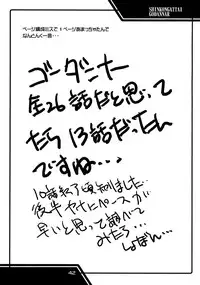 SHINKONGATTAI
GODANNAR
ページ構成ミスで1ページあまっちゃたんで
なんとんく一言・・・
ゴーダンナー
全26話だと思って
たら13話だったん
ですね・・・
10話終了頃知りました。
後半ヤケにペースが
早いと思って調べて
みたら・・・
しょぼん。
42